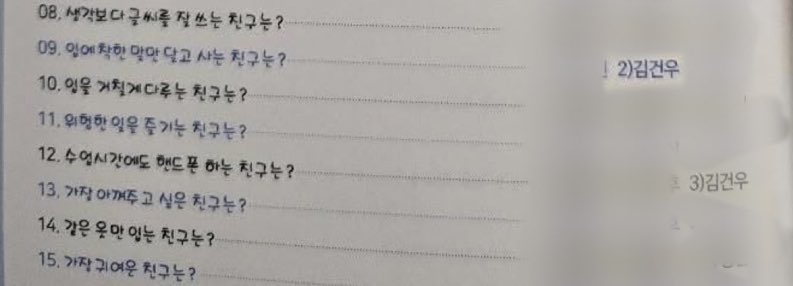 08. 생각보다 글씨를 잘 쓰는 친구는?
09. 입에 착한 말만 달고 사는 친구는? 2)김건우
10. 입을 거칠게 다루는 친구는?
11. 위험한 일을 즐기는 친구는?
12. 수업시간에도 핸드폰 하는 친구는?
13. 가장 아껴주고 싶은 친구는? 3)김건우
14. 같은 옷만 입는 친구는?
15. 가장 귀여운 친구는?